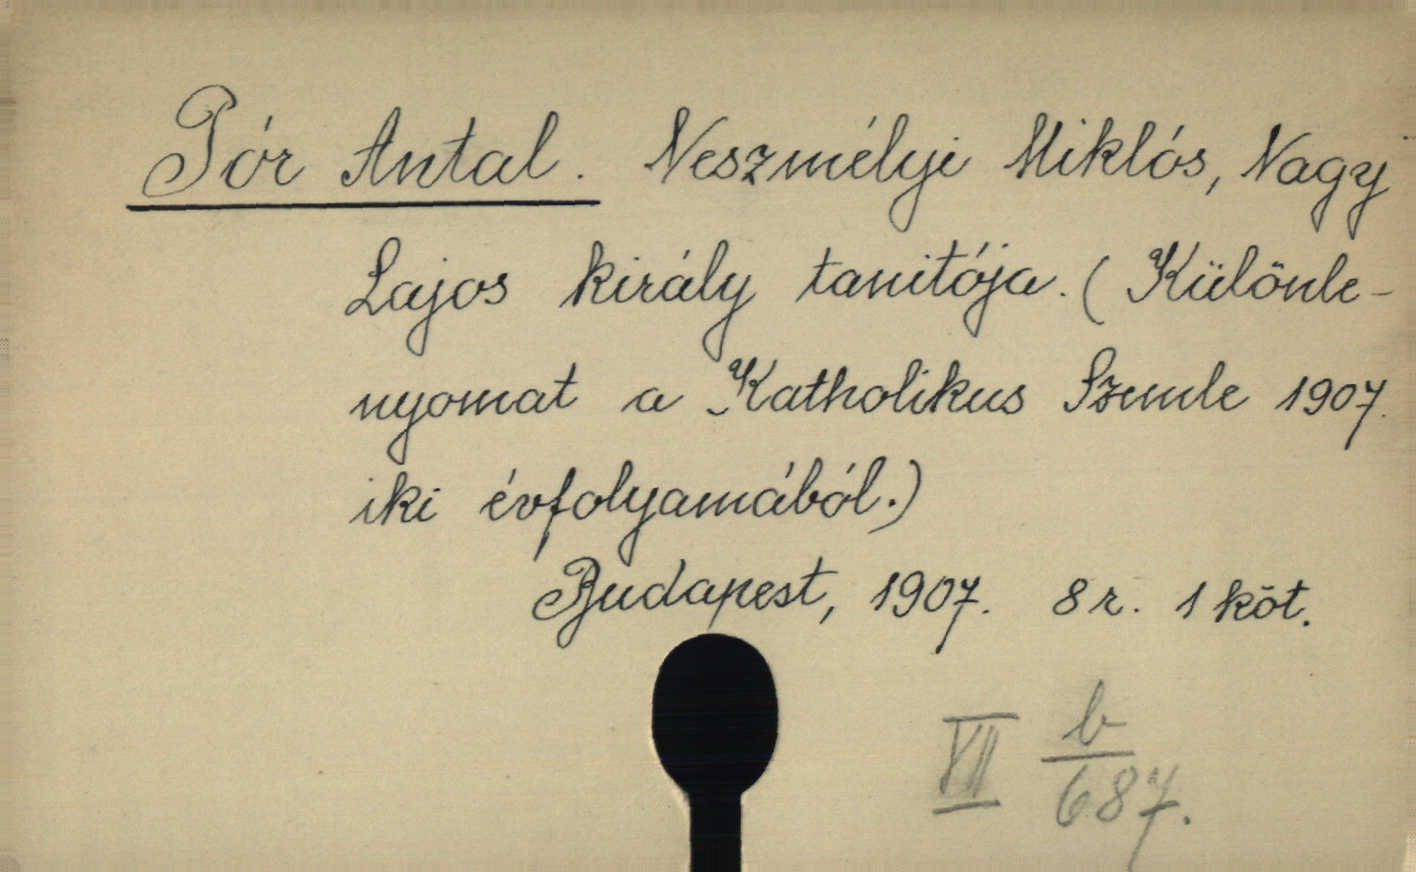 Pór Antal. Neszmélyi Miklós, Nagy
Lajos király tanitója. (Különle-
nyomat a Katholikus Szemle 1907.
iki évfolyamából.)
Budapest, 1907. 8 r. 1 köt.
VII b/687.